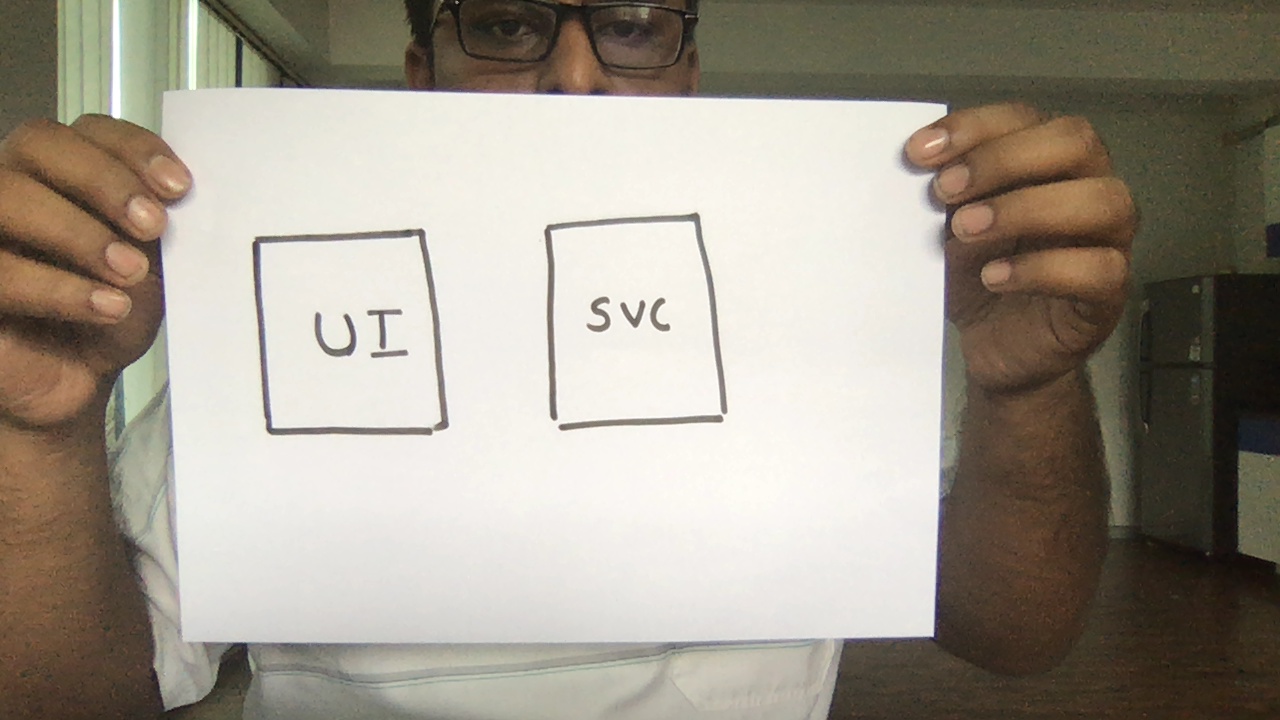 UI
SVC